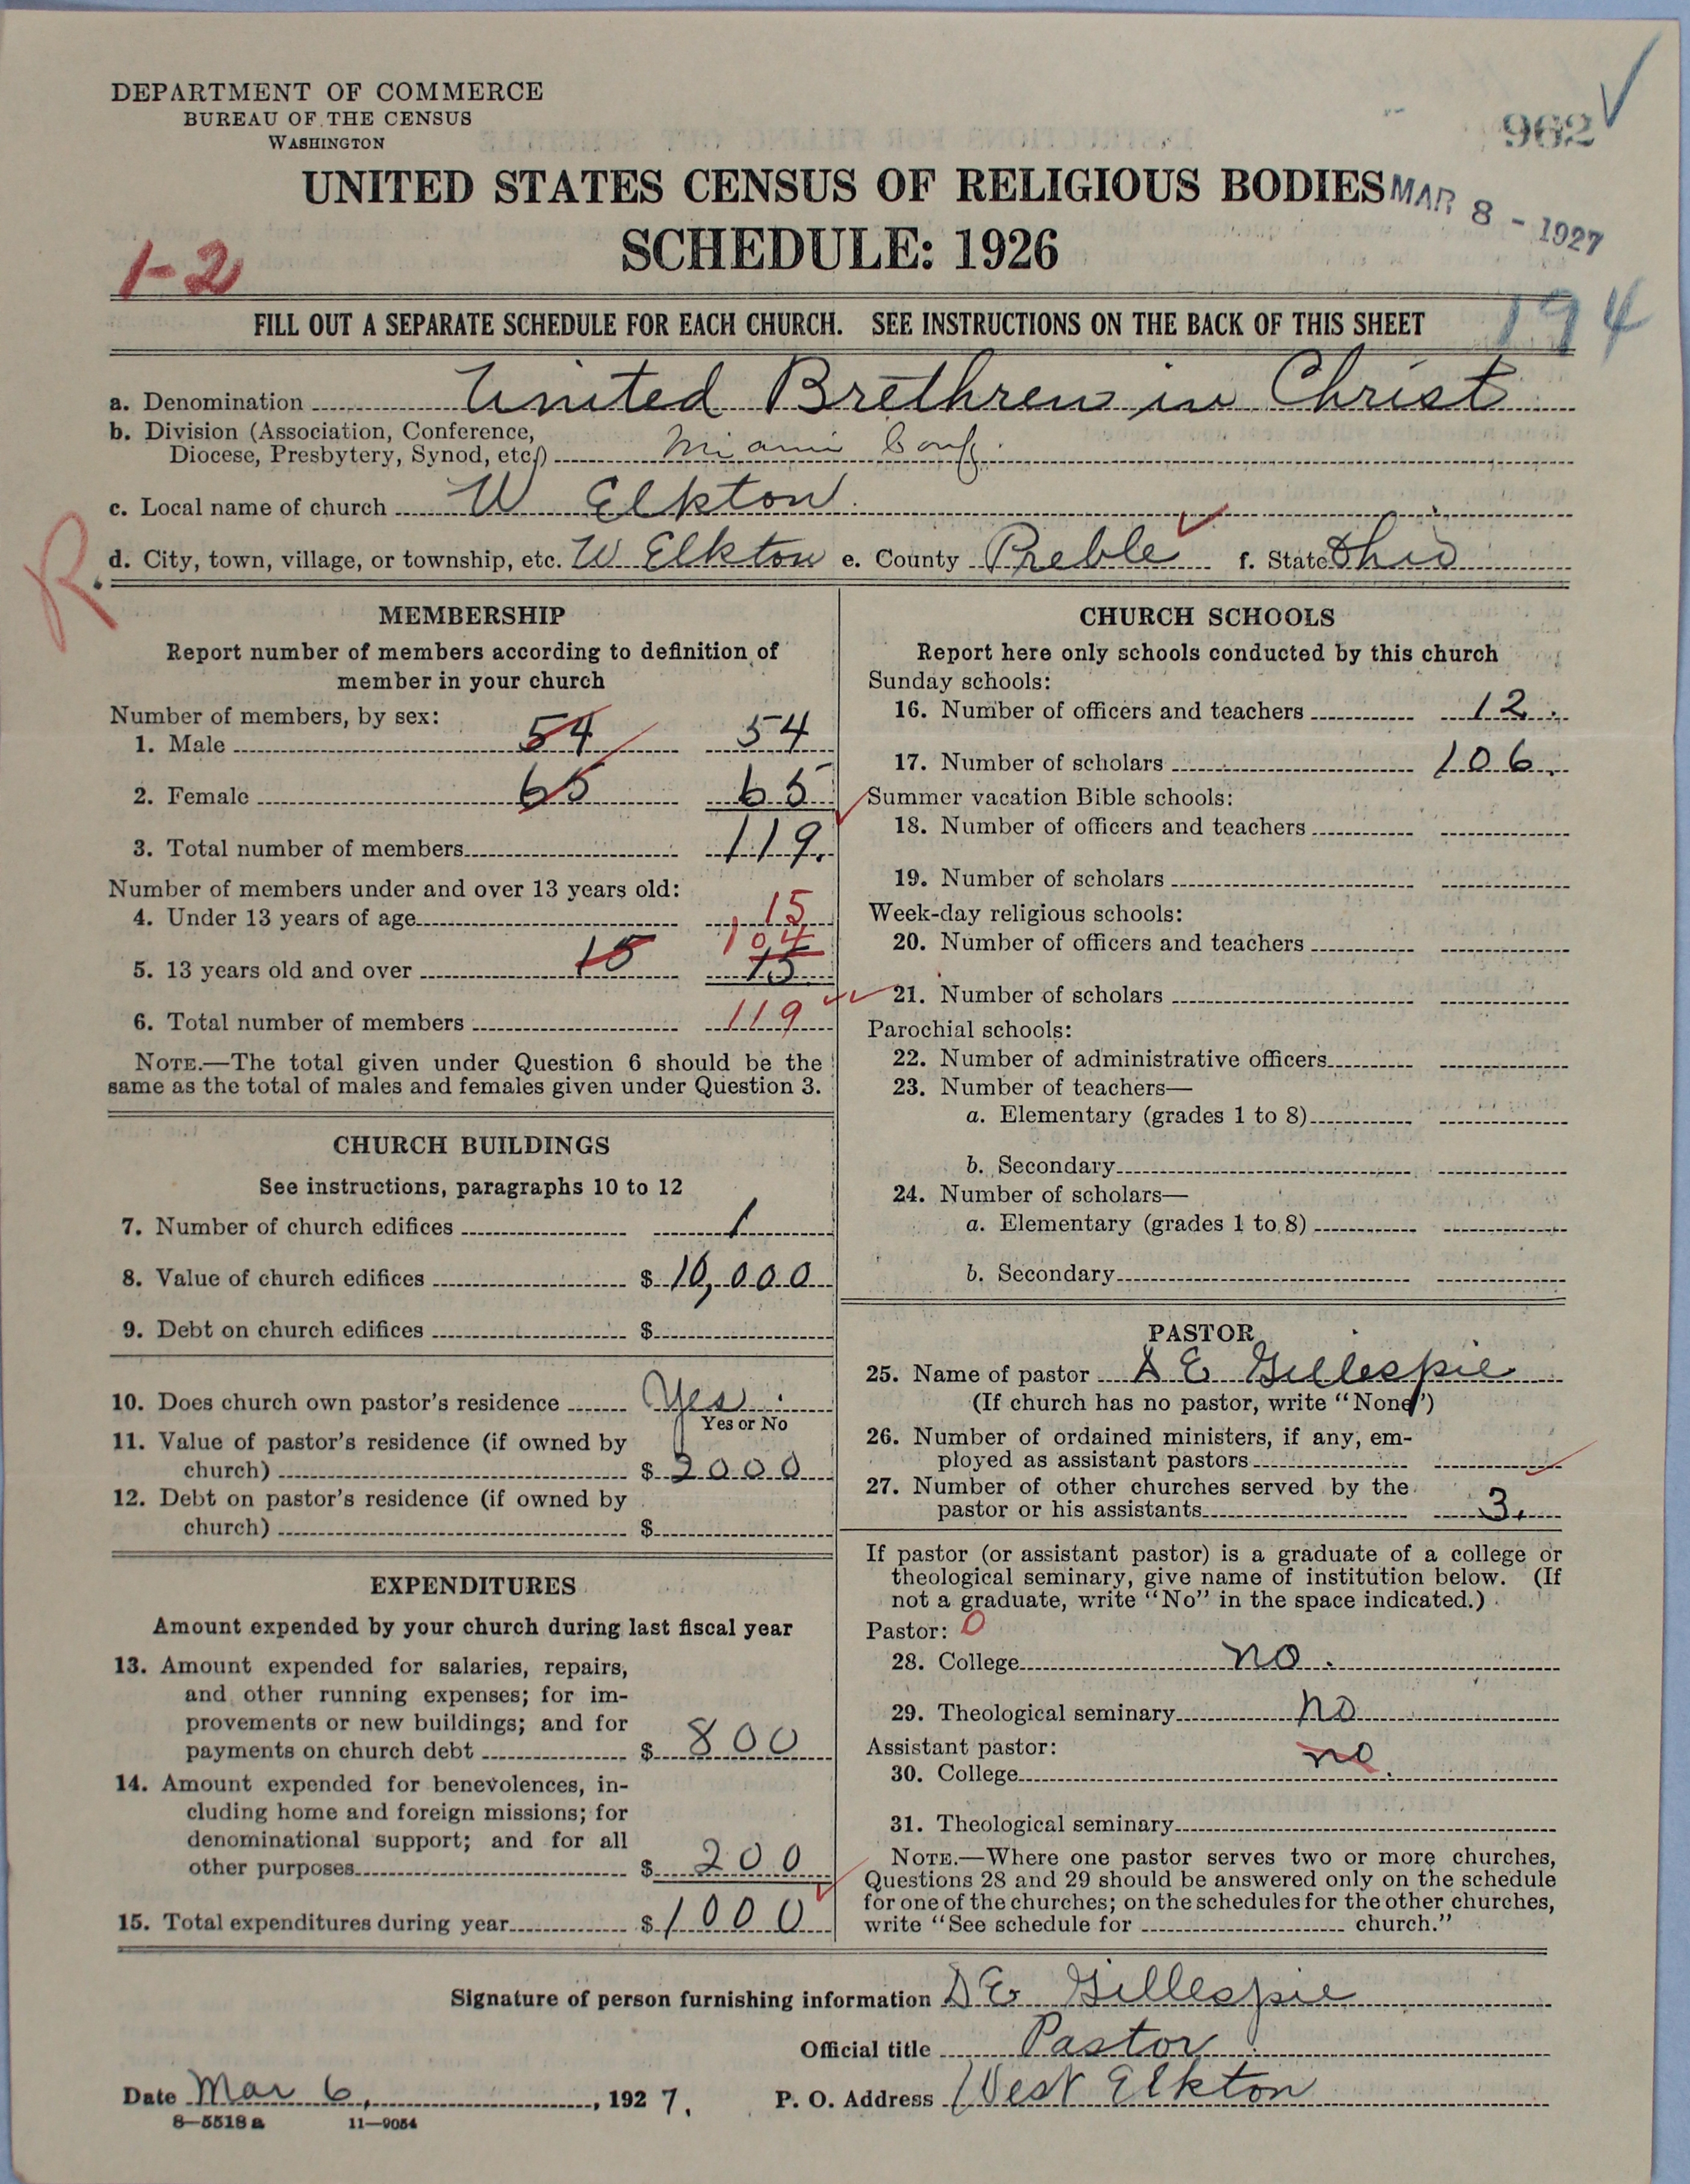 DEPARTMENT OF COMMERCE
BUREAU OF THE CENSUS
WASHINGTON
962
UNITED STATES CENSUS OF RELIGIOUS BODIES
MAR 8 - 1927
SCHEDULE: 1926
1-2
FILL OUT A SEPARATE SCHEDULE FOR EACH CHURCH. SEE INSTRUCTIONS ON THE BACK OF THIS SHEET
194
a. Denomination United Brethren in Christ
b. Division (Association, Conference,
Diocese, Presbytery, Synod, etc.) Miami Conf.
c. Local name of church W Elkton
R.
d. City, town, village, or township, etc. W Elkton e. County Preble f. State Ohio
MEMBERSHIP
Report number of members according to definition of
member in your church
Number of members, by sex:
1. Male 54 54
2. Female 65 65
3. Total number of members 119.
Number of members under and over 13 years old:
4. Under 13 years of age 15
104
5. 13 years old and over 15 15
6. Total number of members 119
NOTE.—The total given under Question 6 should be the
same as the total of males and females given under Question 3.
CHURCH BUILDINGS
See instructions, paragraphs 10 to 12
7. Number of church edifices 1
8. Value of church edifices $ 10,000
9. Debt on church edifices $
10. Does church own pastor's residence Yes
Yes or No
11. Value of pastor's residence (if owned by
church) $ 2000
12. Debt on pastor's residence (if owned by
church) $
EXPENDITURES
Amount expended by your church during last fiscal year
13. Amount expended for salaries, repairs,
and other running expenses; for im-
provements or new buildings; and for
payments on church debt $ 800
14. Amount expended for benevolences, in-
cluding home and foreign missions; for
denominational support; and for all
other purposes $ 200
15. Total expenditures during year $ 1000
CHURCH SCHOOLS
Report here only schools conducted by this church
Sunday schools:
16. Number of officers and teachers 12.
17. Number of scholars 106.
Summer vacation Bible schools:
18. Number of officers and teachers
19. Number of scholars
Week-day religious schools:
20. Number of officers and teachers
21. Number of scholars
Parochial schools:
22. Number of administrative officers
23. Number of teachers—
a. Elementary (grades 1 to 8)
b. Secondary
24. Number of scholars—
a. Elementary (grades 1 to 8)
b. Secondary
PASTOR
25. Name of pastor D E Gillespie
(If church has no pastor, write "None")
26. Number of ordained ministers, if any, em-
ployed as assistant pastors
27. Number of other churches served by the
pastor or his assistants 3.
If pastor (or assistant pastor) is a graduate of a college or
theological seminary, give name of institution below. (If
not a graduate, write "No" in the space indicated.)
Pastor: 0
28. College no.
29. Theological seminary no
Assistant pastor:
30. College no.
31. Theological seminary
NOTE.—Where one pastor serves two or more churches,
Questions 28 and 29 should be answered only on the schedule
for one of the churches; on the schedules for the other churches,
write "See schedule for church."
Signature of person furnishing information D E Gillespie
Official title Pastor
Date Mar 6, , 1927. P. O. Address West Elkton
8—5518 a 11—9054